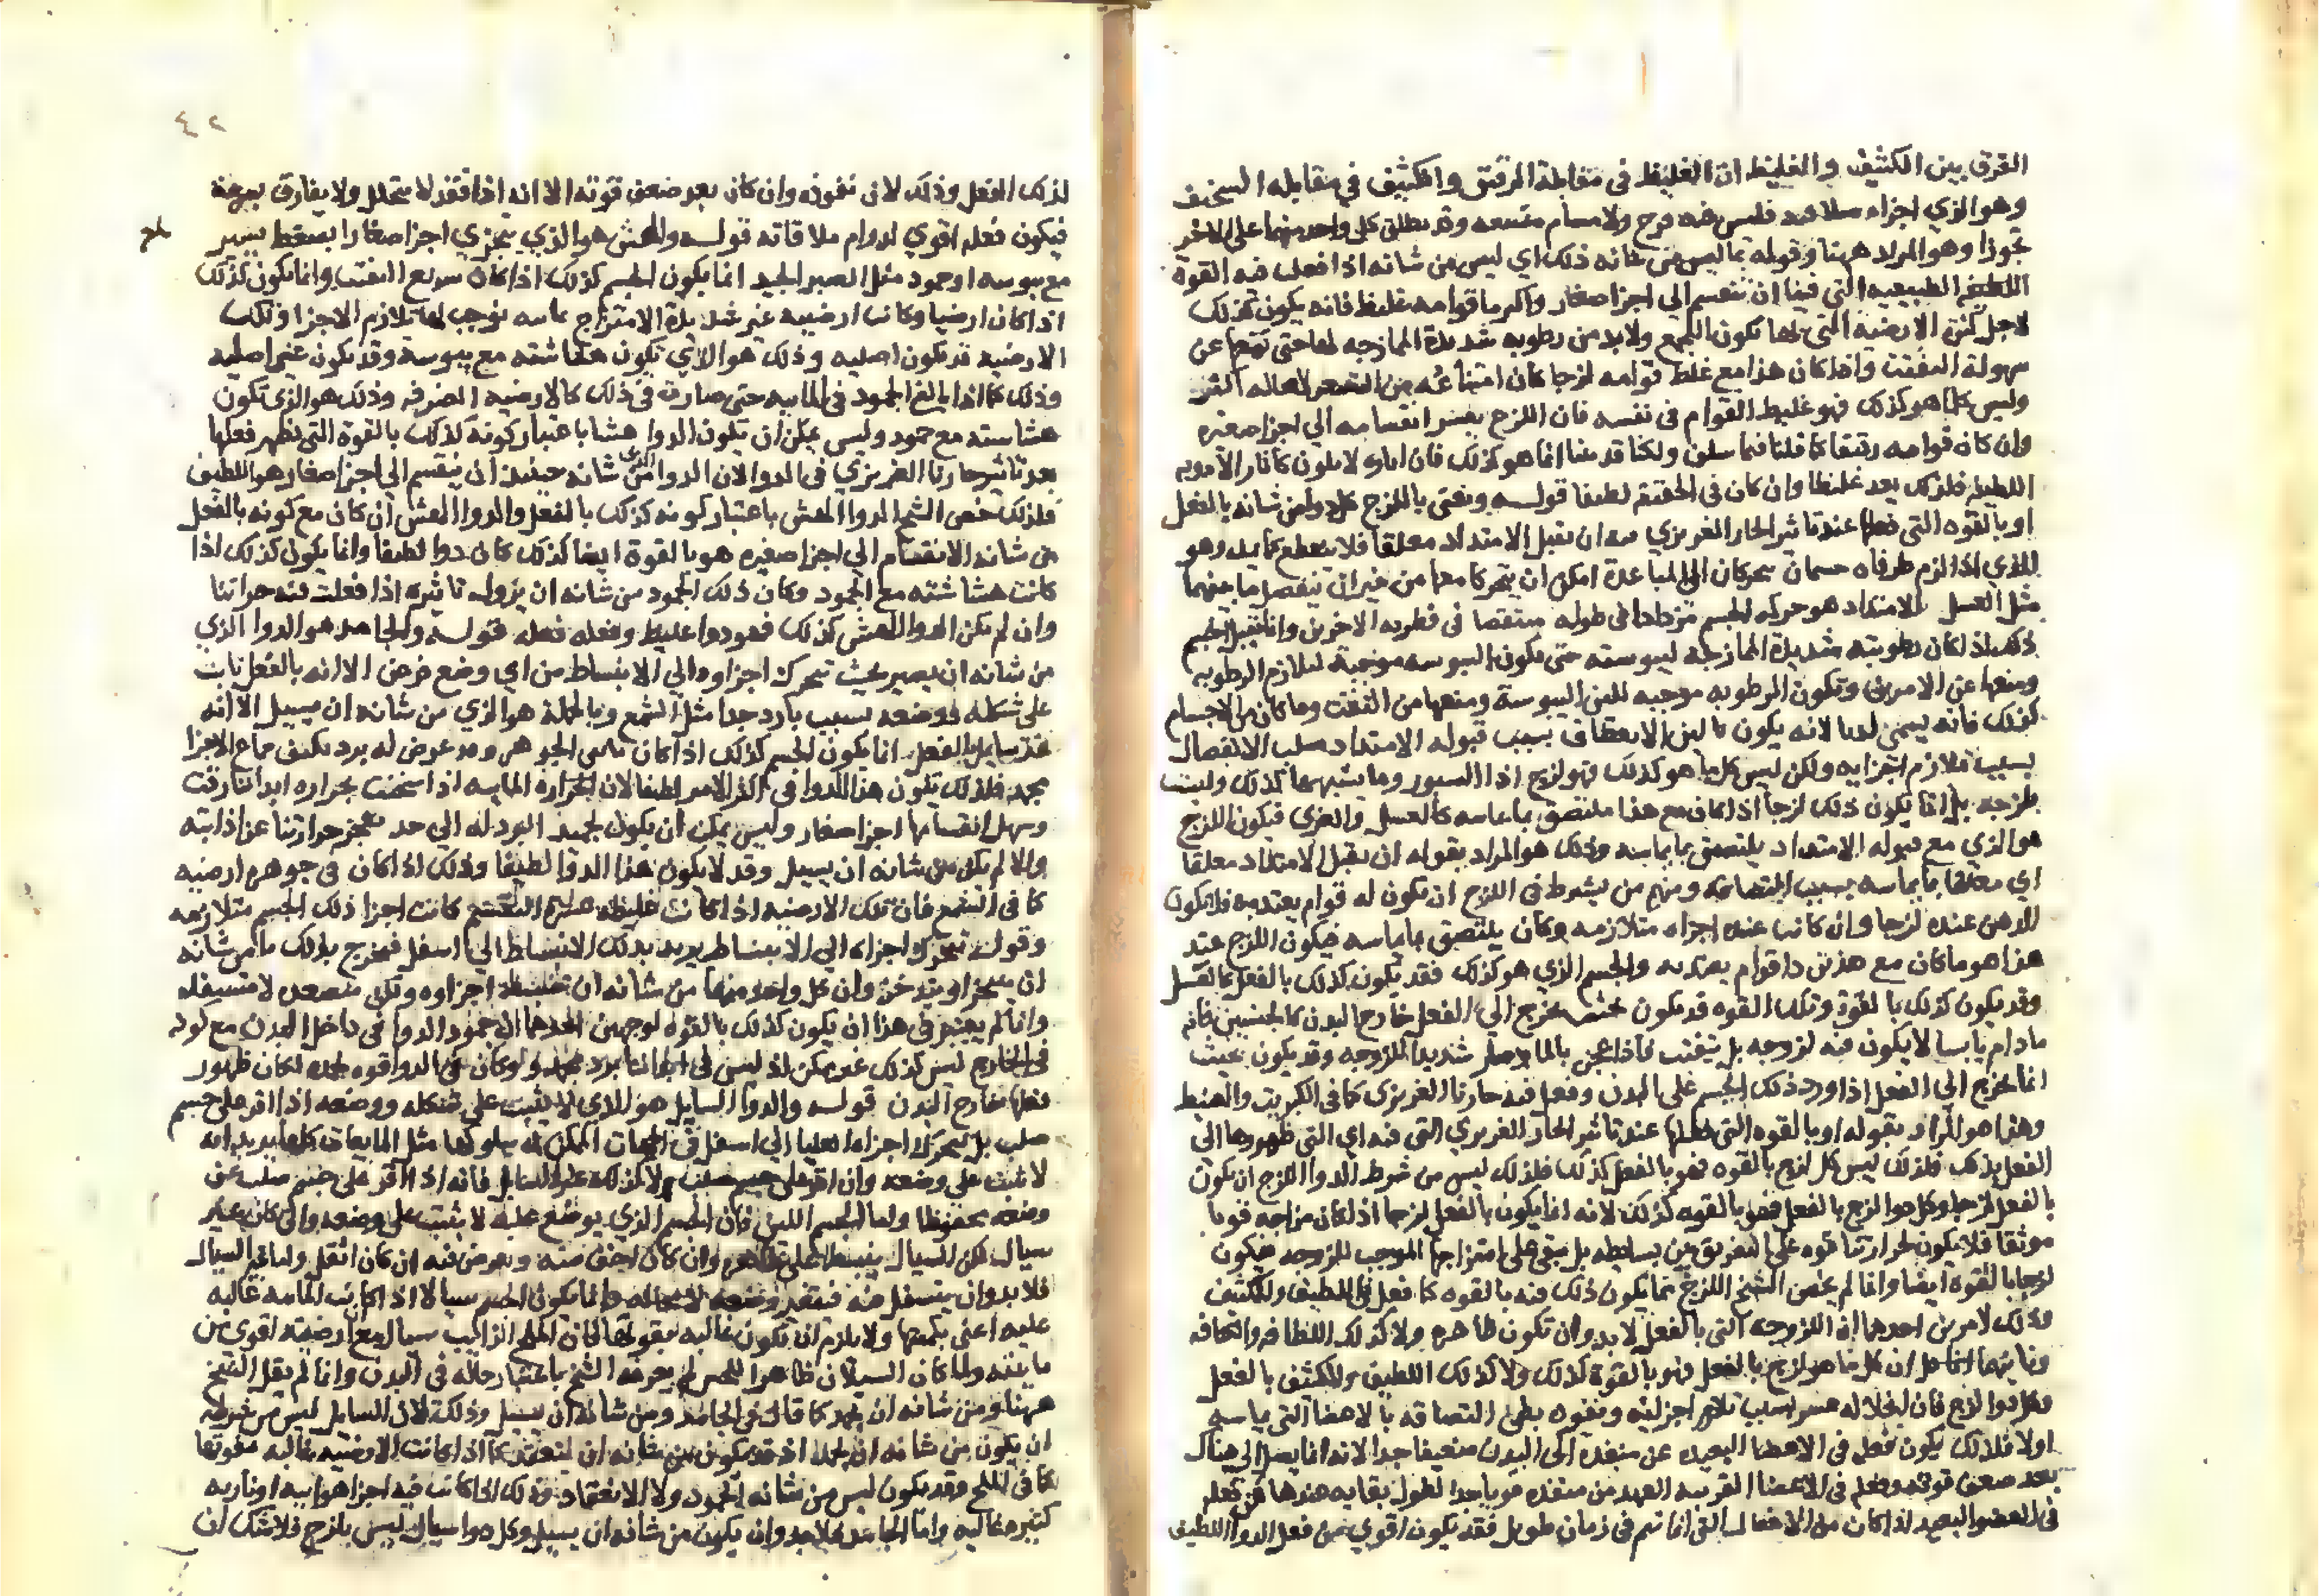 الفرق بين الكثيف والغليظ ان الغليظ فى مقابلة الرقيق والكثيف في مقابله السخيف
وهو الذي اجزاه فليس فيه فرج ولا مسام متسعه وقد يطلق كل واحد منهما على الاخر
تجوزا وهو المراد ههنا وقوله ما ليس من شانه ذلك اي ليس من شانه اذا فعلت فيه القوة
الطبيعيه التي فينا ان تنقسم الي اجزا صغار واكثر ما قوامه غليظ فانه يكون كذلك
لاجل كثرة الارضية التي بها تكون ولا بد من رطوبه شديدة الممازجه لها حتى عن
سهولة التفتت واذا كان هذا مع غلظ قوامه لزجا كان امتناعه من لا محاله اكثر
وليس كلما هو كذلك فهو غليظ القوام فى نفسه فان اللزج يعسر انقسامه الي اجزا صغيره
وان كان قوامه رقيقا كما قلنا فيما سلف ولكنا انما هو كذلك فان لا يكون الادويه
اللطيفه فلذلك يعد غليظا وان كان فى الحقيقه لطيفا قوله ونعنى باللزج كل دوا من شانه بالفعل
او بالقوه التي فعلها عند تاثير الحار الغريزي ان يقبل الامتداد معلقا فلا ينقطع كما يمد وهو
الذي اذا لزم طرفاه جسمان يتحركان الي المباعدة امكن ان يتحركا معا من غير ان ينفصل ما بينهما
مثل العسل الامتداد هو حركه الجسم مزدادا فى طوله منتقصا فى قطريه الاخرين وانما يقبل الجسم
ذلك اذا كان رطوبته شديدة الممازجه ليبوسته حتى تكون اليبوسه موجبة لتلازم الرطوبه
ومنعها عن وتكون الرطوبه موجبه للين اليبوسة ومنعها من التفتت وما كان من الاجسام
كذلك فانه يسمى لدنا لانه يكون ما لين الانعطاف بسبب قبوله الامتداد الانفصال
بسبب تلازم اجزايه ولكن ليس كل ما هو كذلك فهو لزج اذ السيور وما يشبهها كذلك وليست
بلزجه بل انما يكون ذلك لزجا اذا كان مع هذا ملتصق بما يماسه كالعسل والغري فيكون اللزج
هو الذي مع قبوله الامتداد يلتصق بما يماسه وذلك هو المراد بقوله ان يقبل الامتداد معلقا
اي معلقا بما يماسه بسبب التصاقه ومنهم من يشرط فى اللزج ان يكون له قوام يعتد به فلا يكون
الدهن عنده لزجا وان كانت عنده اجزاه متلازمه وكان يلتصق بما يماسه فيكون اللزج عند
هذا هو ما كان مع هذين ذا قوام يعتد به والجسم الذي هو كذلك فقد يكون كذلك بالفعل كالعسل
وقد يكون كذلك بالقوة وتلك القوه قد تكون تخرج الي الفعل خارج البدن
ما دام يابسا لا يكون فيه لزوجه بل يتفتت فاذا عجن بالما صار شديد اللزوجه وقد يكون بحيث
انما تخرج الي الفعل اذا ورد ذلك الجسم على البدن وفعل فيه حارنا الغريزى كما فى الكبريت
وهذا هو المراد بقوله او بالقوه التي فعلها عند تاثير الحار الغريزي التي فيه اي التي ظهورها الى
الفعل بذلك فلذلك ليس كل لزج بالقوه فهو بالفعل كذلك فلذلك ليس من شرط الدوا اللزج ان يكون
بالفعل لزجا وكل دوا لزج بالفعل فهو بالقوه كذلك لانه انما يكون بالفعل لزجا اذا كان مزاجه قويا
موثقا فلا يكون لحرارتنا قوه على التفريق بين بسايطه بل يبقى على امتزاجها الموجب للزوجه فيكون
لزجا بالقوه ايضا وانما لم يخص الشيخ اللزج بما يكون ذلك فيه بالقوه كما فعل فى اللطيف والكثيف
وذلك لامرين احدهما ان اللزوجه التي بالفعل لا بد وان تكون ظاهره ولا كذلك اللطافه والكثافه
وثانيهما ان كل ما هو لزج بالفعل فهو بالقوة كذلك ولا كذلك اللطيف والكثيف بالفعل
وكل دوا لزج فان انحلاله عسر بسبب تلازم اجزايه ونفوذه بطي التصاقه بالاعضا التي يماسها
اولا فلذلك يكون فعله فى الاعضا البعيده عن منفذه الى البدن ضعيفا جدا لانه انما يصل الي هناك
بعد ضعف قوته وفعله فى الاعضا القريبه العهد من منفذه قويا جدا لطول بقايه عندها
فى العضو البعيد اذا كان من الافعال التي انما تتم فى زمان طويل فقد يكون اقوي من فعل الدوا اللطيف
٤٢
لذلك الفعل وذلك لان نفوذه وان كان بعد ضعف قوته الا انه اذا نفذ لا يتحلل ولا يفارق بسرعة
فيكون فعله اقوي لدوام ملاقاته قوله والهش هو الذي يتجزي اجزا صغارا بضغط يسير
مع يبوسه او جمود مثل الصبر الجيد انما يكون الجسم كذلك اذا كان سريع التفتت وانما يكون كذلك
اذا كان ارضيا وكانت ارضيته غير شديدة الامتزاج بمائيه توجب لها تلازم الاجزا وتلك
الارضيه قد تكون اصليه وذلك هو الذي تكون هشاشته مع يبوسة وقد تكون غير اصليه
وذلك كما اذا بالغ الجمود فى المائيه حتى صارت فى ذلك كالارضيه الصرفه وذلك هو الذى تكون
هشاشته مع جمود وليس يمكن ان يكون الدوا هشا باعتبار كونه كذلك بالقوة التي يظهر فعلها
بعد تاثير حارنا الغريزي فى الدوا لان الدوا الذى شانه حينئذ ان ينقسم الي اجزا صغار هو اللطيف
فلذلك خص الشيخ الدوا الهش باعتبار كونه كذلك بالفعل والدوا الهش ان كان مع كونه بالفعل
من شانه الانقسام الي اجزا صغيره هو بالقوة ايضا كذلك كان دوا لطيفا وانما يكون كذلك اذا
كانت هشاشته مع الجمود وكان ذلك الجمود من شانه ان يزول تاثيره اذا فعلت فيه حرارتنا
وان لم يكن الدوا الهش كذلك فهو دوا غليظ وفعله فعله قوله والجامد هو الدوا الذي
من شانه ان يصير بحيث تتحرك اجزاوه الي الانبساط من اي وضع فرض الا انه بالفعل ثابت
على شكله ووضعه بسبب بارد جدا مثل الشمع وبالجملة هو الذي من شانه ان يسيل الا انه
غير سايل بالفعل. انما يكون الجسم كذلك اذا كان مائى الجوهر وقد عرض له برد اجزا
جمد فلذلك يكون هذا الدوا فى اكثر الامر لطيفا لان الحراره المائيه اذا سخنت بحراره ابداننا رقت
وسهل انقسامها اجزا صغار وليس يمكن ان يكون تجميد البرد له الي حد تعجز حرارتنا عن اذابته
والا لم يكن من شانه ان يسيل وقد لا يكون هذا الدوا لطيفا وذلك اذا كان فى جوهره ارضيه
كما فى الشمع فان تلك الارضيه اذا كانت غليظه كانت اجزا ذلك الجسم متلازمه
وقوله تتحرك اجزاه الي الانبساط يريد بذلك الانبساط الي اسفل فيخرج بذلك ما من شانه
ان يتبخر او يتدخن وان كل واحد منهما من شانه ان تنبسط اجزاوه ولكن متصعده لا متسفله
وانما لم يعتبر فى هذا ان يكون كذلك بالقوه لوجهين احدهما ان جمود الدوا فى داخل البدن مع كونه
فى الخارج ليس كذلك غير ممكن اذ ليس فى ابداننا برد يجمد ولو كان فى الدوا قوه لكان ظهور
فعلها خارج البدن قوله والدوا السايل هو الذى لا يثبت على شكله ووضعه اذا اقر على جسم
صلب بل تتحرك اجزاه العليا الي اسفل فى الجهات الممكن له سلوكها مثل المايعات كلها يريد انه
لا يثبت على وضعه وان اقر على جسم صلب ولا كذلك غير السايل فانه اذا اقر على جسم صلب
وضعه محفوظا واما الجسم اللين فان الجسم الذي يوضع عليه لا يثبت على وضعه وان كان غير
سيال لكن السيال ينبسط على ظاهره وان كان اخف منه فيه ان كان اثقل واما غير السيال
فلا بد وان يتسفل منه فيتغير وضعه لا محاله وانما يكون الجسم سيالا اذا كانت المائيه غالبه
عليه اعني بكميتها ولا يلزم ان تكون غالبه بقوتها فان الملح الذايب سيال مع ان ارضيته اقوي من
مائيته ولما كان السيلان ظاهرا للحس لم يعرفه الشيخ باعتبار حاله فى البدن وانما لم يقل الشيخ
ههنا ومن شانه ان يجمد كما قال فى الجامد ومن شانه ان يسيل وذلك لان السايل ليس من شرطه
ان يكون من شانه ان يجمد اذ قد يكون من شانه ان ينعقد كما اذا كانت الارضيه غالبه بقوتها
كما فى الملح وقد يكون ليس من شانه الجمود ولا الانعقاد وذلك اذا كانت فيه اجزا هوائيه او ناريه
كثيره غاليه واما الجامد فلا بد وان يكون من شانه ان يسيل وكل دوا سيال ليس بلزج فلا شك ان